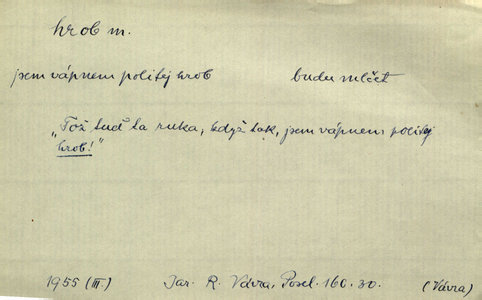 hrob m.
jsem vápnem politej hrob budu mlčet
„Tož tuď ta ruka, když tak, jsem vápnem politej
hrob!"
1955 (III.) Jar. R. Vávra, Posel. 160.30. (Vávra)